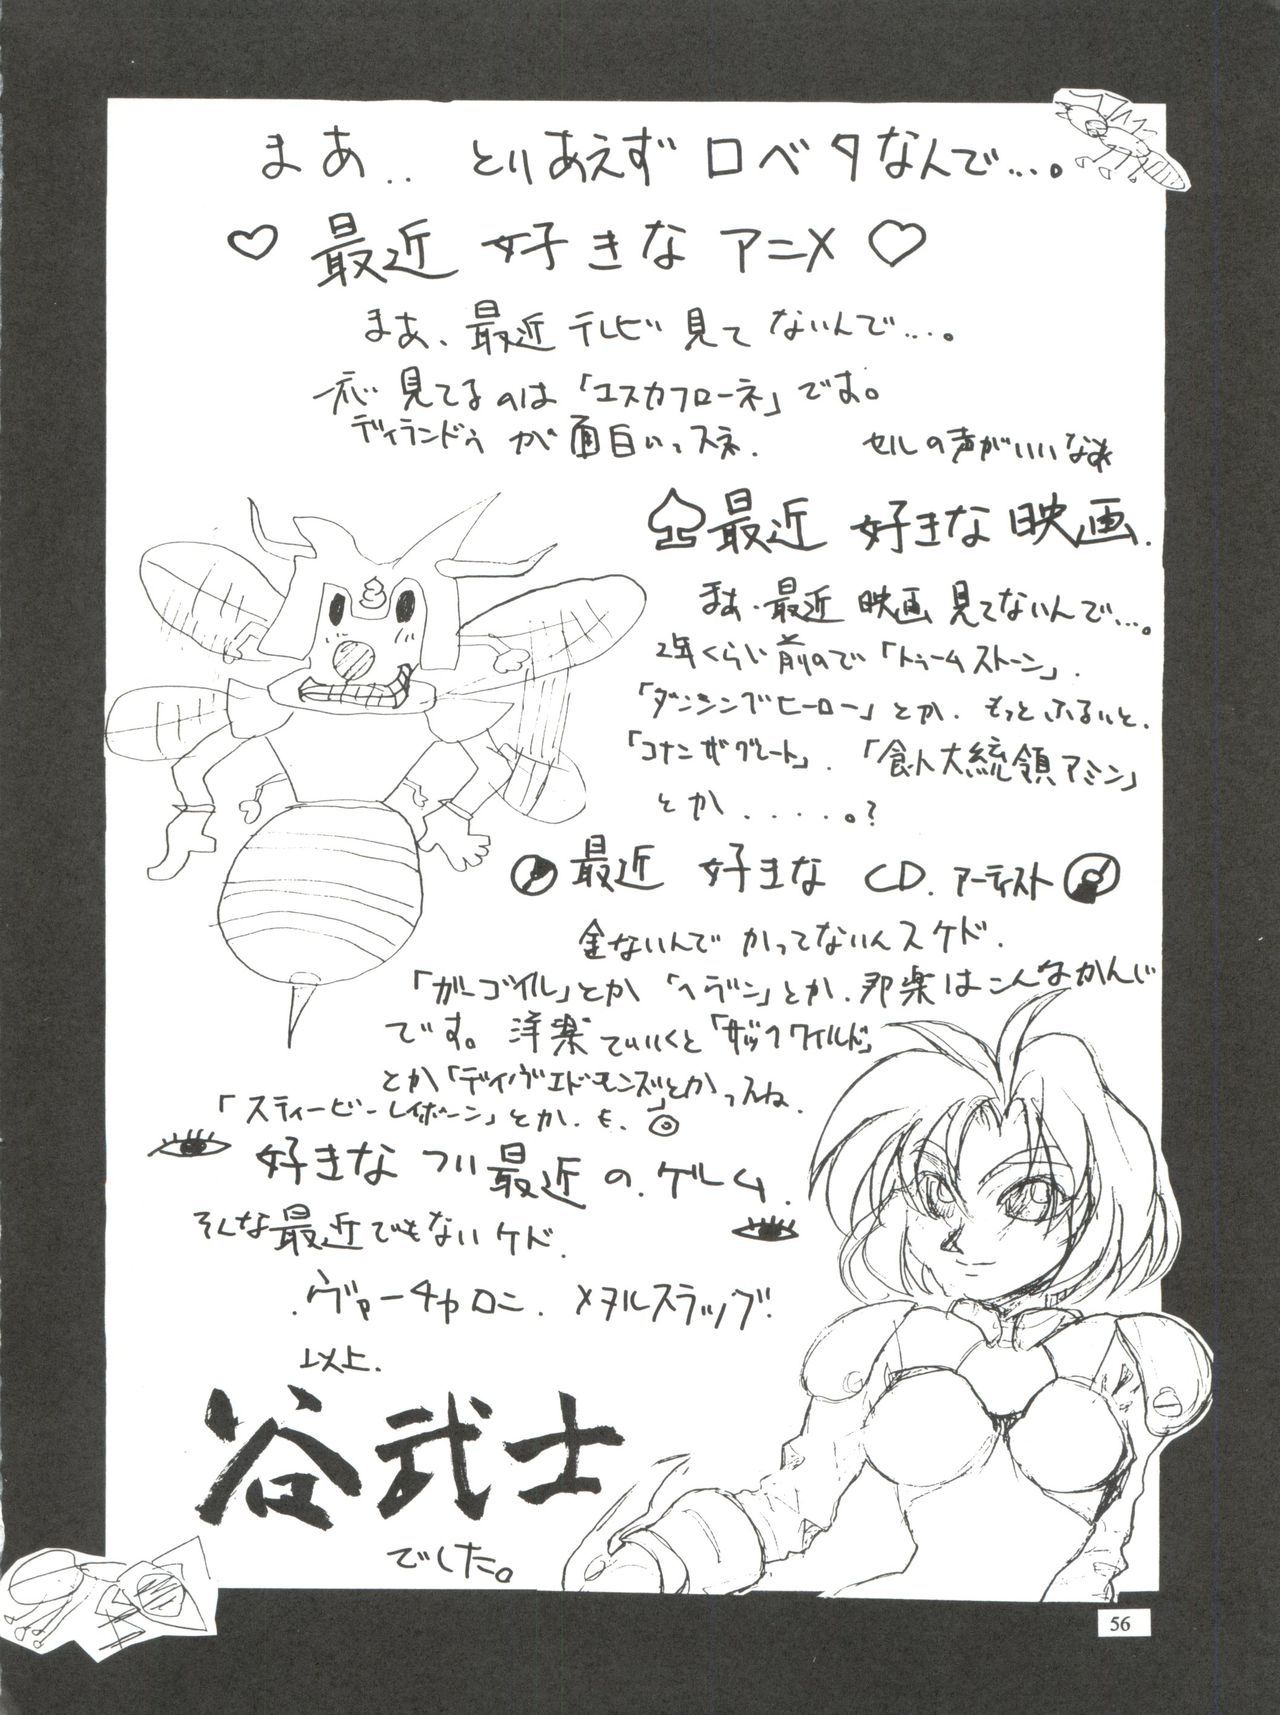 まあ.. とりあえず ロベタなんで...。
♡ 最近 好きな アニメ ♡
まあ、最近 テレビ 見て ないんで...。
一応 見てるのは「エスカフローネ」です。
ディランドゥ が 面白いっスネ.
セルの声がいいなぁ
♤最近 好きな 映画.
まあ.最近 映画 見てないんで...。
2年くらい前ので「トゥームストーン」.
「ダンシングヒーロー」とか. もっとふるいと.
「コナン ザ グレート」.「食人大統領アミン」
とか.....。?
最近 好きな CD.アーティスト
金ないんで かってないんスケド.
「ガーゴイル」とか「ヘヴン」とか.邦楽はこんなかんじ
です。洋楽でいくと「ザックワイルド」
とか「デイヴエドモンズ」とかっスね.
「スティービーレイボーン」とか.も.◎
好きな つい最近 の.ゲーム.
そんな最近でもないケド.
.ヴァーチャロン. メタルスラッグ.
以上.
谷武士
でした。
56